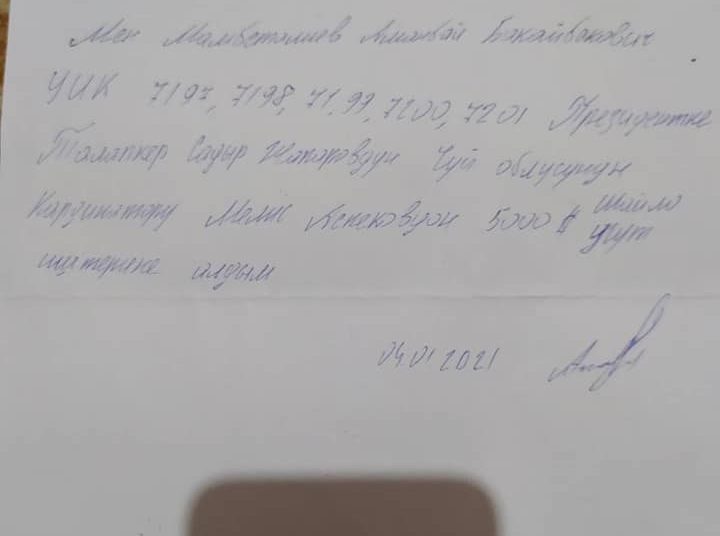 Мен Мамбеталиев Алманбай Бакайбакович
УИК 7197, 7198, 71,99, 7200, 7201 Президентке
Талапкер Садыр Жапаровдун Чуй облусунун
Кардинатору Мелис 5000 шайло
учун
иштерине алдым
04.01 2021